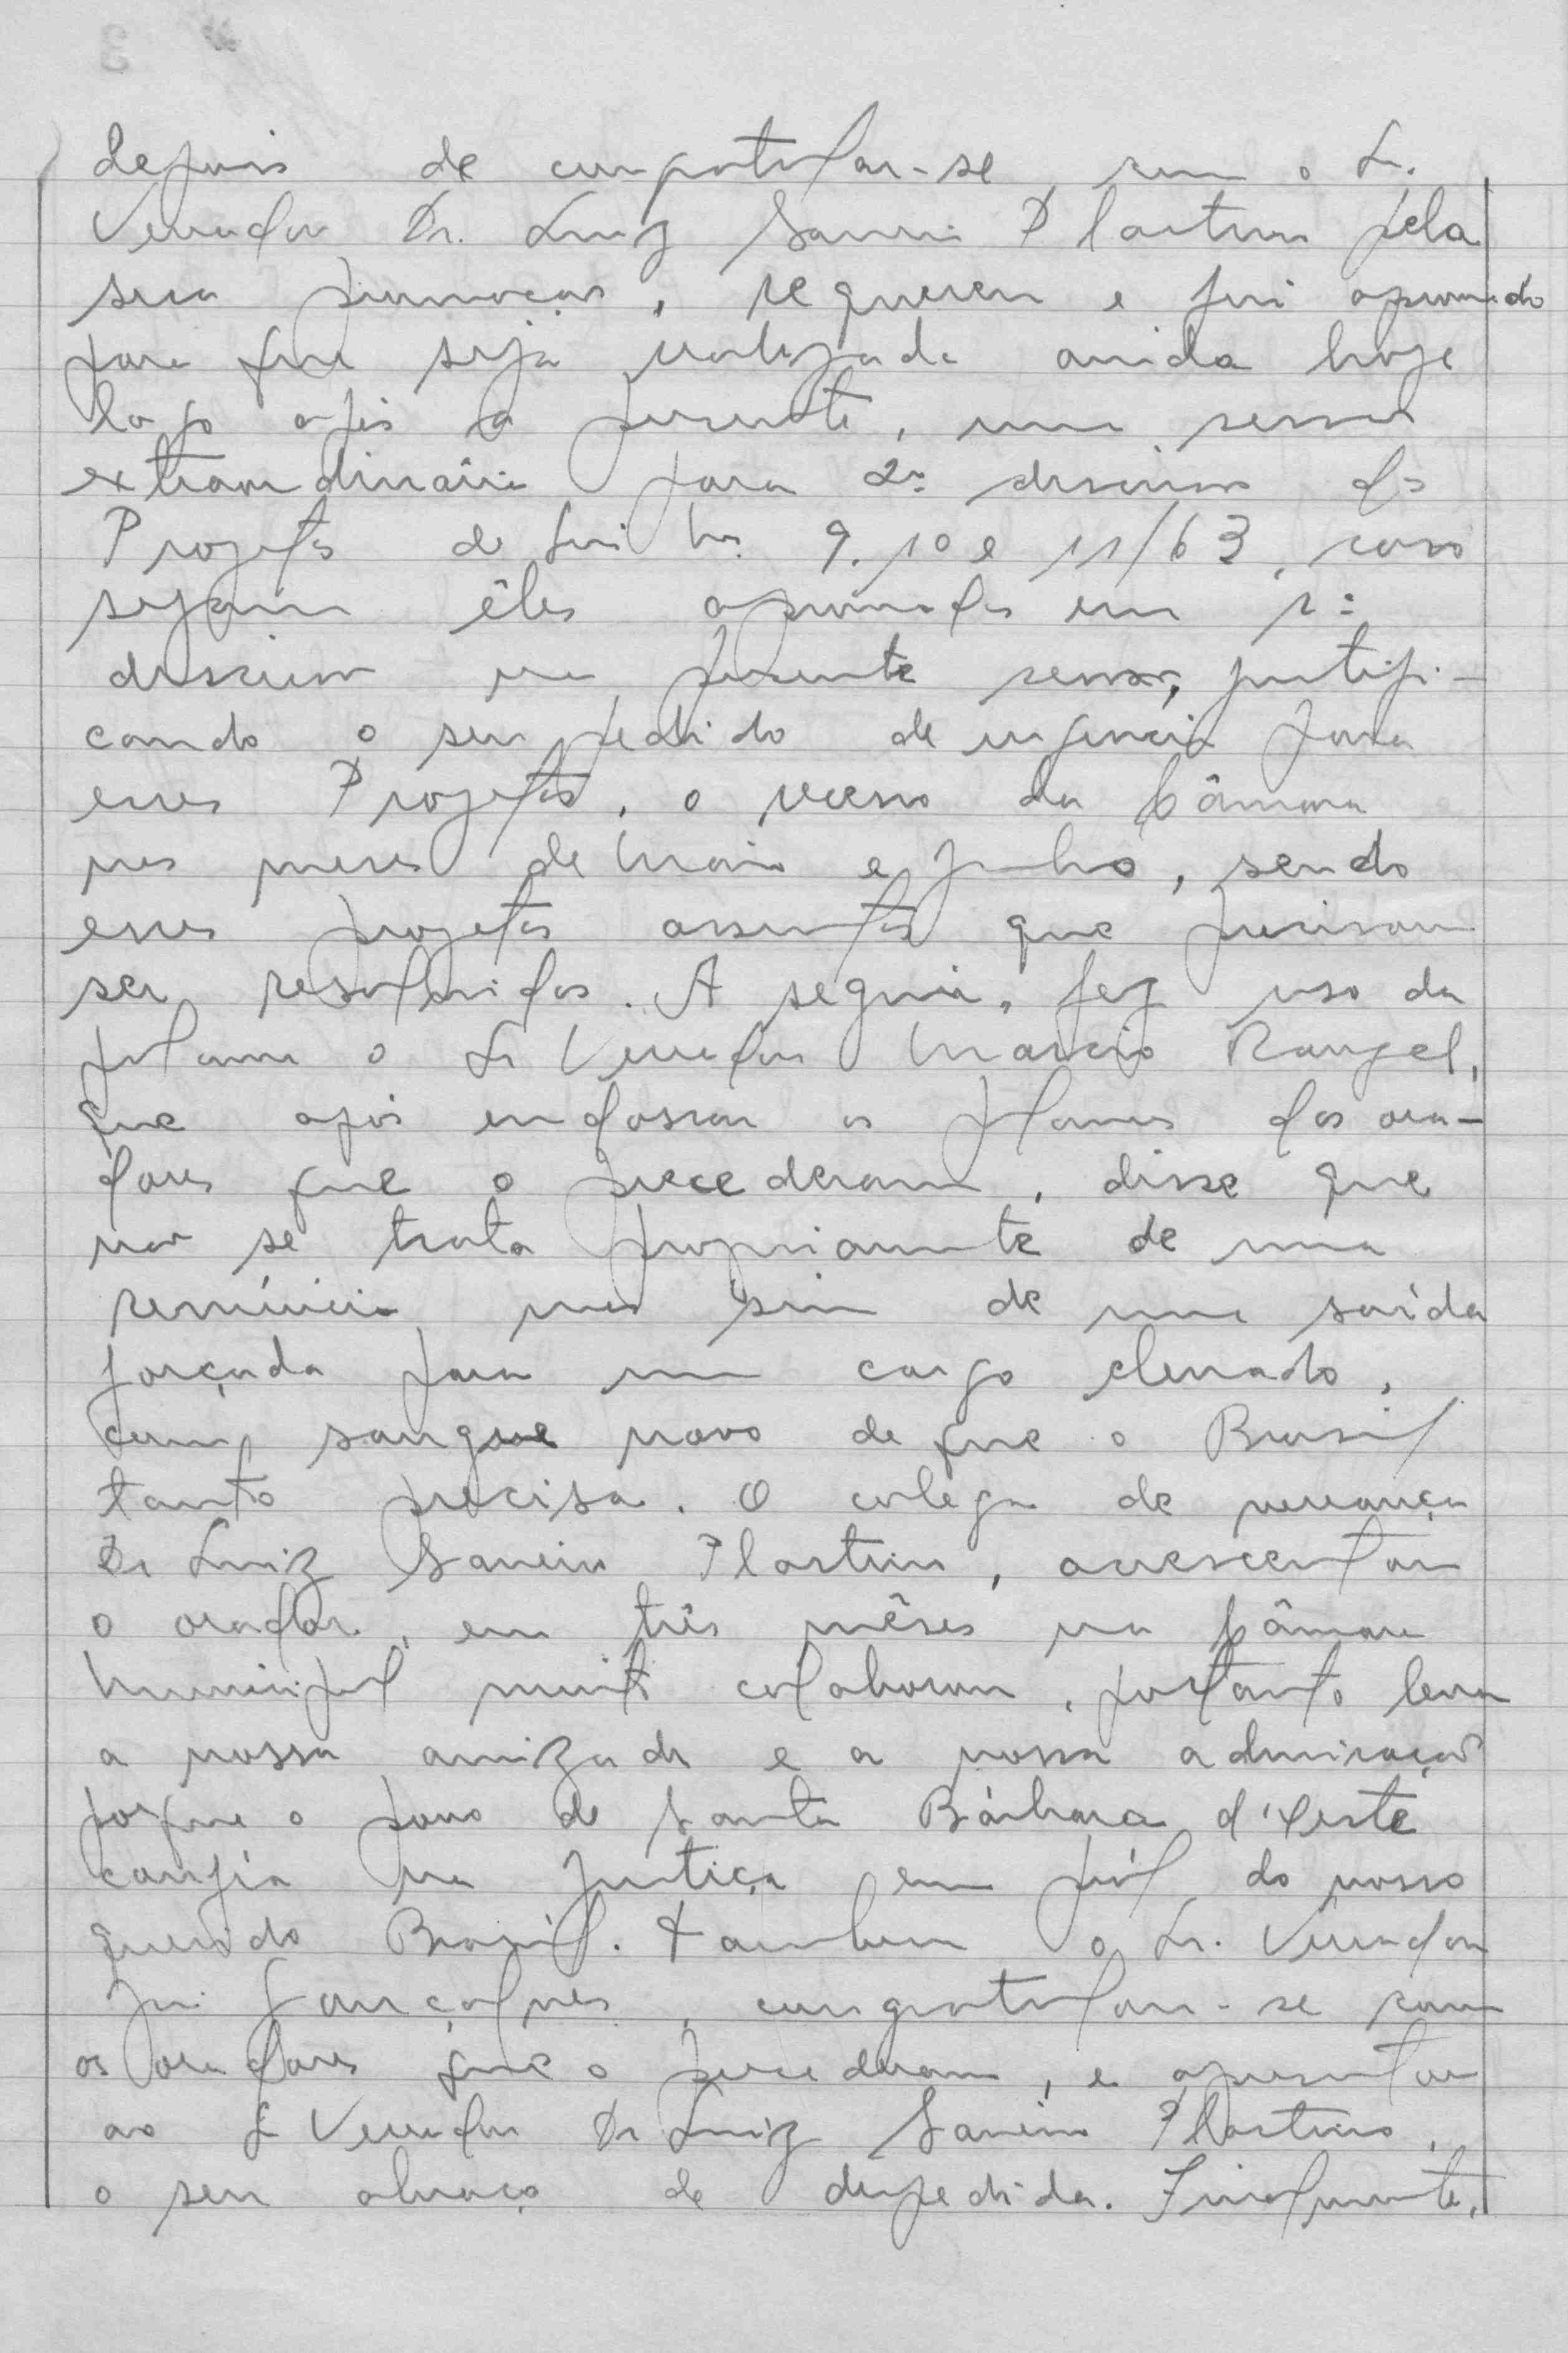 depois de congratular-se com o Sr.
Vereador Dr. Luiz Saverio Plastino pela
sua promoção, requereu e foi aprovado
para que seja realizada ainda hoje
logo após a presente, uma sessão
extraordinária para 2ª discussão dos
Projetos de Lei Nos. 9, 10 e 11/63, caso
sejam êles aprovados em 1ª
discussão na presente sessão, justifi-
cando o seu pedido de urgência para
esses Projetos, o recesso da Câmara
nos meses de Maio e Junho, sendo
esses projetos assuntos que precisam
ser resolvidos. A seguir, fez uso da
palavra o Sr Vereador Marcio Rangel,
que após endossar as palavras dos ora-
dores que o precederam, disse que
não se trata propriamente de uma
renúncia mas sim de uma saída
forçada para um cargo elevado,
com sangue novo de que o Brasil
tanto precisa. O colega de vereança
Dr Luiz Saverio Plastino, acrescentou
o orador, em três mêses na Câmara
Municipal muito colaborou, portanto leva
a nossa amizade e a nossa admiração
porque o povo de Santa Bárbara d'Oeste
confia na Justiça em pról do nosso
querido Brasil. Tambem o Sr. Vereador
Gonçalves, congratulou-se com
os oradores que o precederam, e apresentou
ao Sr Vereador Dr Luiz Saverio Plastino,
o seu abraço de despedida. Finalmente,